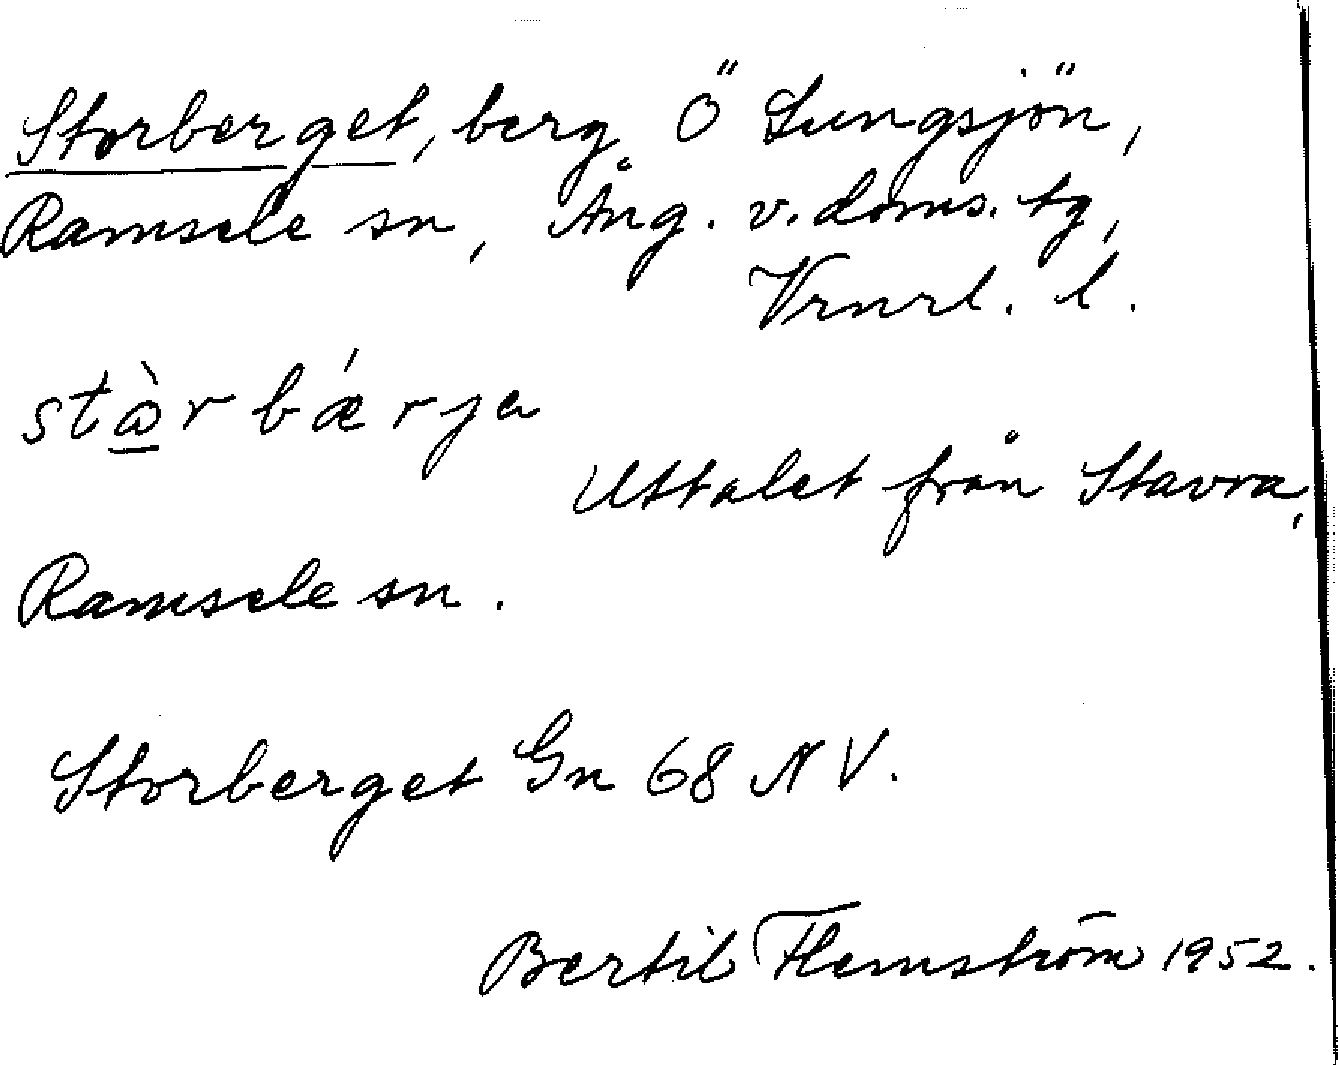 Storberget, berg Ö Lungsjön,
Ramsele sn, Ång. v. doms. tg,
Vrnrl. l.
stὼr bǽrja
Uttalet från Stavra,
Ramsele sn.
Storberget Gn 68 NV.
Bertil Flemström 1952.